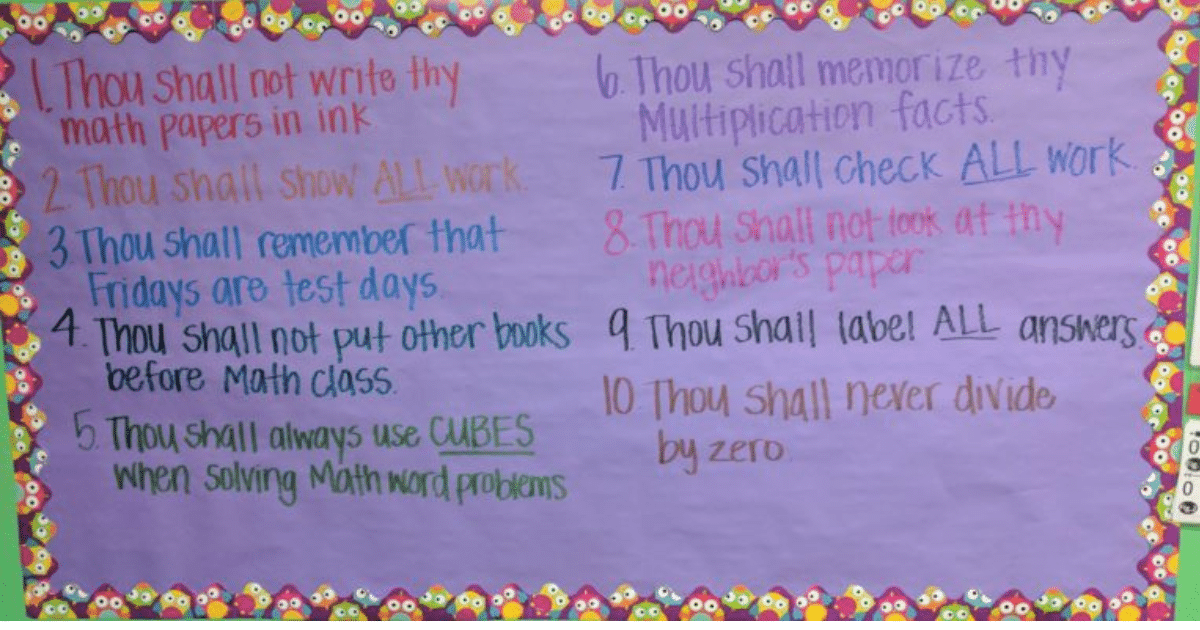 1. Thou shall not write thy
math papers in ink
2. Thou shall show ALL work.
3 Thou shall remember that
Fridays are test days.
4. Thou shall not put other books
before Math class.
5. Thou shall always use CUBES
when solving Math word problems
6. Thou shall memorize thy
Multiplication facts.
7. Thou shall check ALL work.
8. Thou shall not look at thy
neighbor's paper
9. Thou shall label ALL answers.
10 Thou shall never divide
by zero.